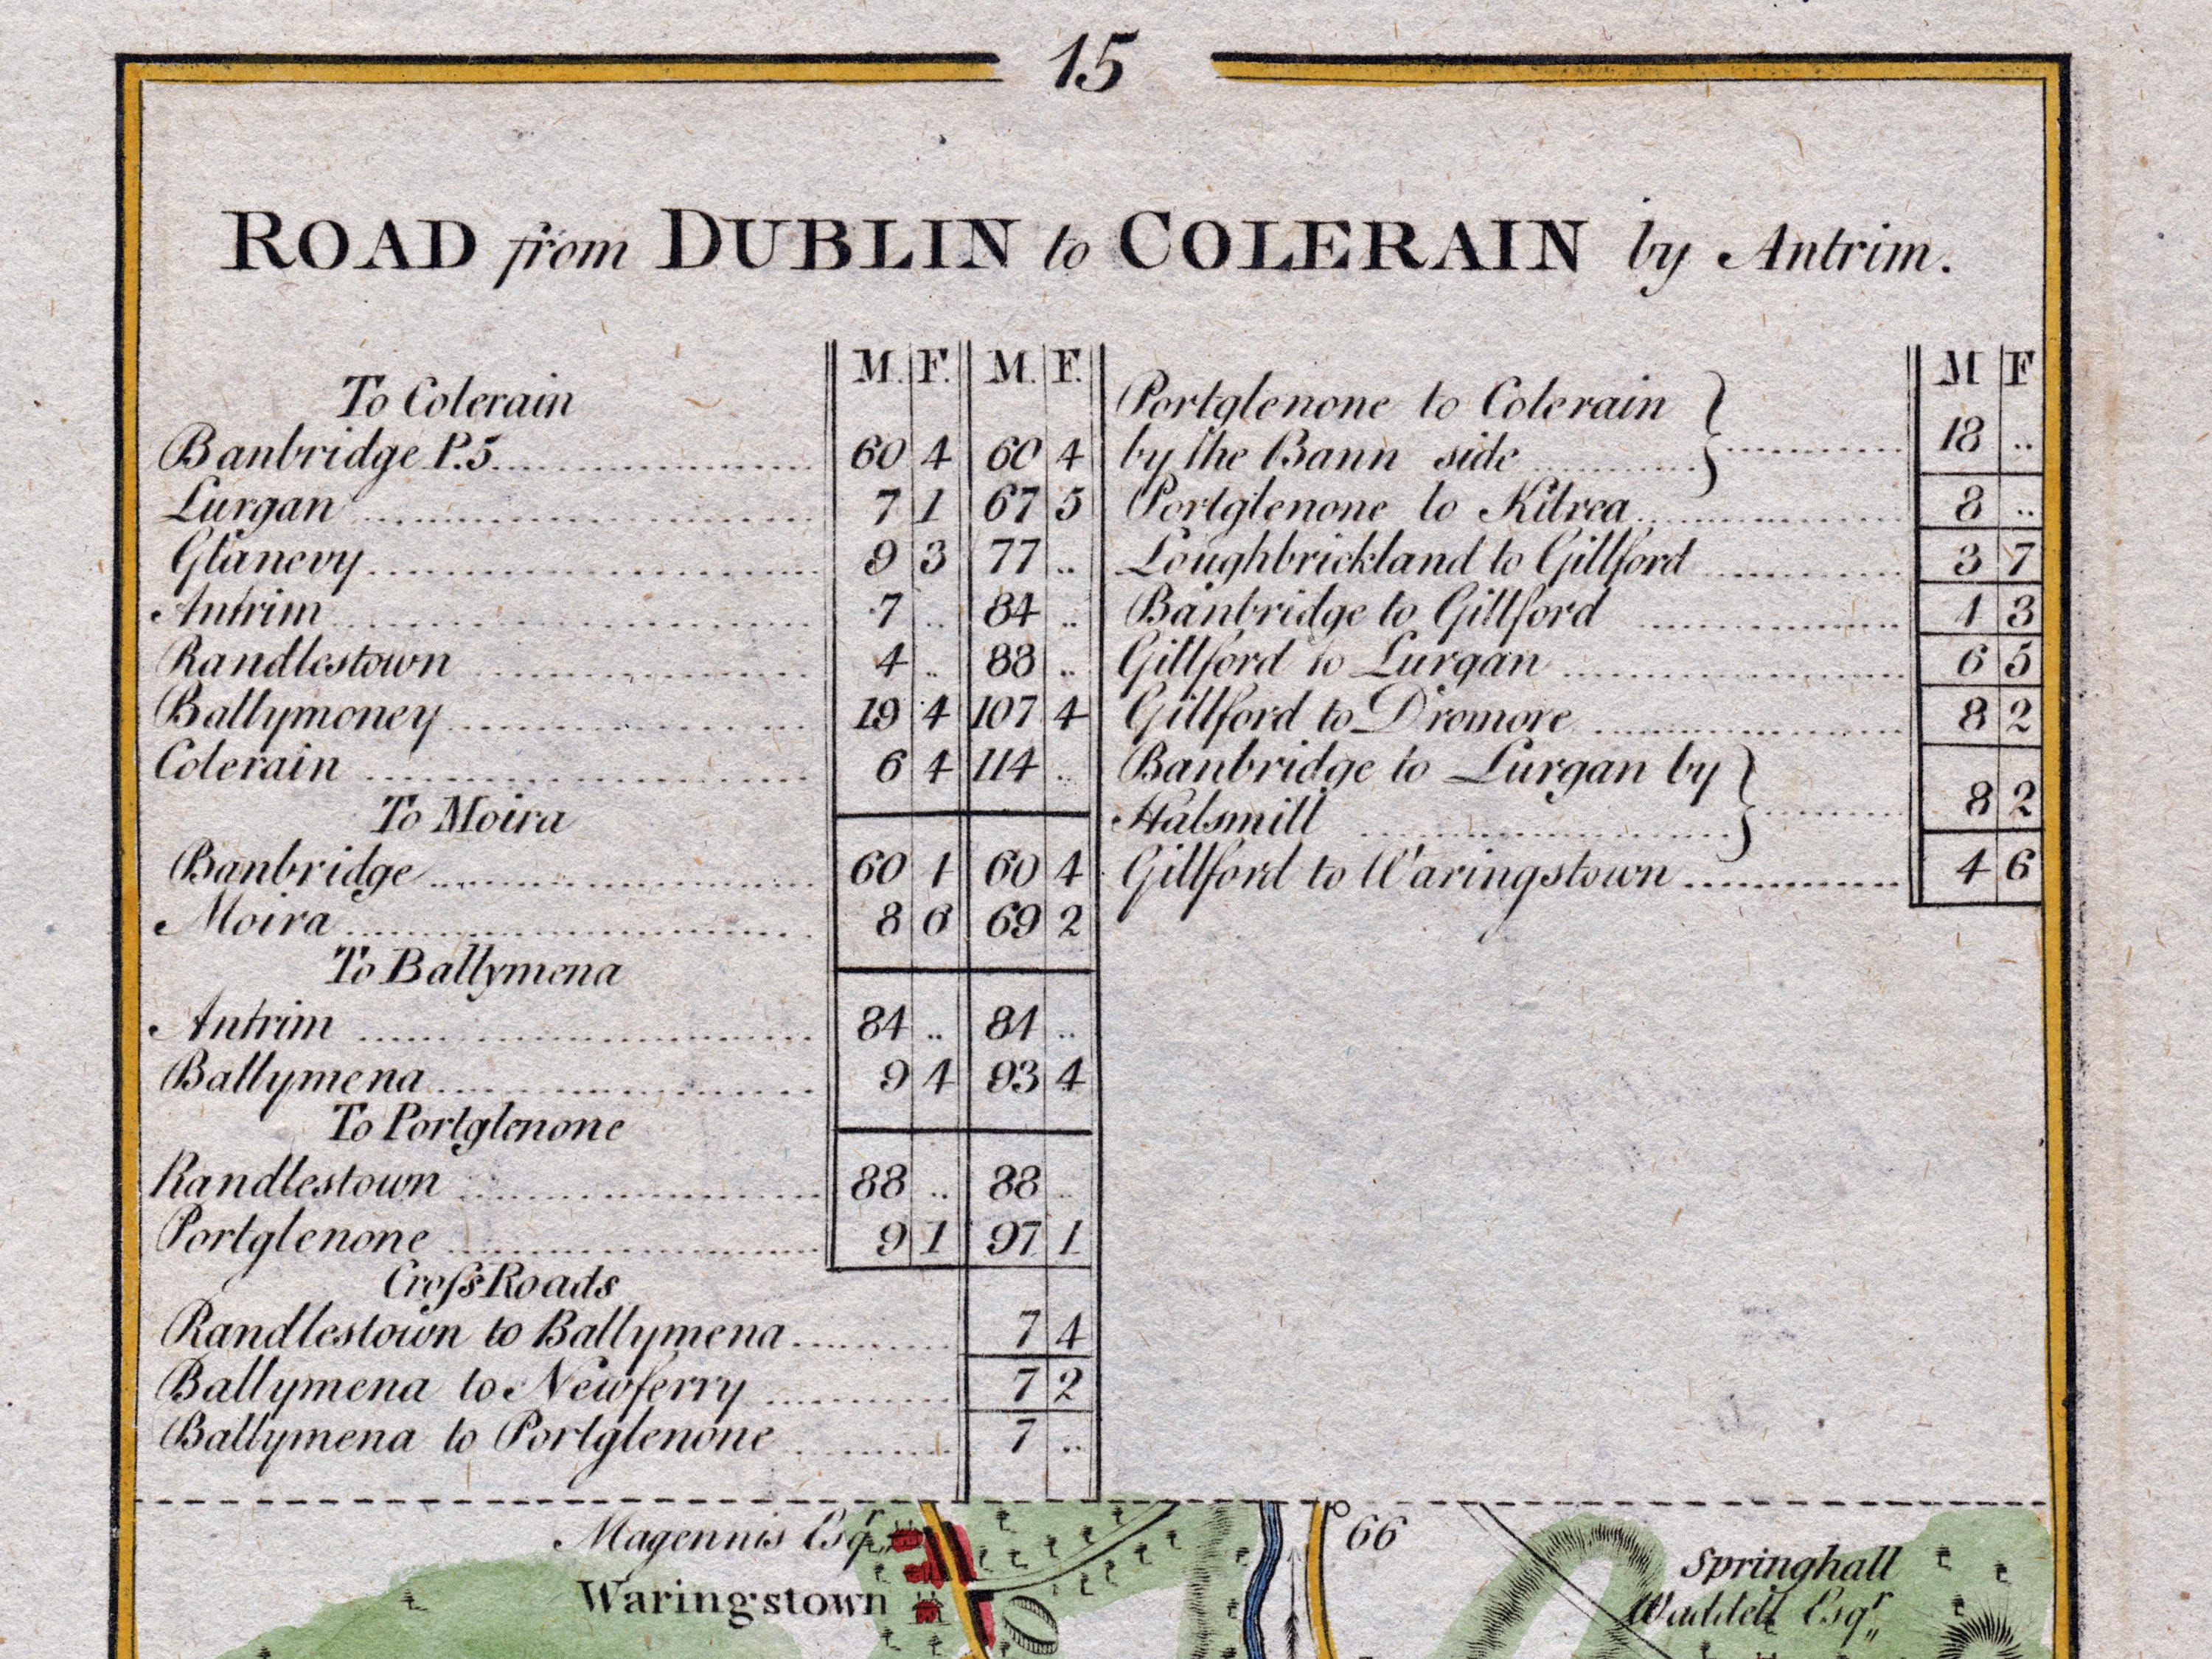 15
ROAD from DUBLIN to COLERAIN by Antrim.
M. F. M. F.
To Colerain
Banbridge P.5. 60 4 60 4
Lurgan 7 1 67 5
Glanevy 9 3 77 ..
Antrim 7 .. 84 ..
Randlestown 4 .. 88 ..
Ballymoney 19 4 107 4
Colerain 6 4 114 ..
To Moira
Banbridge 60 4 60 4
Moira 8 6 69 2
To Ballymena
Antrim 84 .. 84 ..
Ballymena 9 4 93 4
To Portglenone
Randlestown 88 .. 88 ..
Portglenone 9 1 97 1
Croſs Roads
Randlestown to Ballymena 7 4
Ballymena to Newferry 7 2
Ballymena to Portglenone 7 ..
M F
Portglenone to Colerain
by the Bann side 18 ..
Portglenone to Kilrea 8 ..
Loughbrickland to Gillford 3 7
Banbridge to Gillford 4 3
Gillford to Lurgan 6 5
Gillford to Dromore 8 2
Banbridge to Lurgan by
Halsmill 8 2
Gillford to Waringstown 4 6
Magennis Esqr.
Waringstown
66
Springhall
Waddell Esqr.